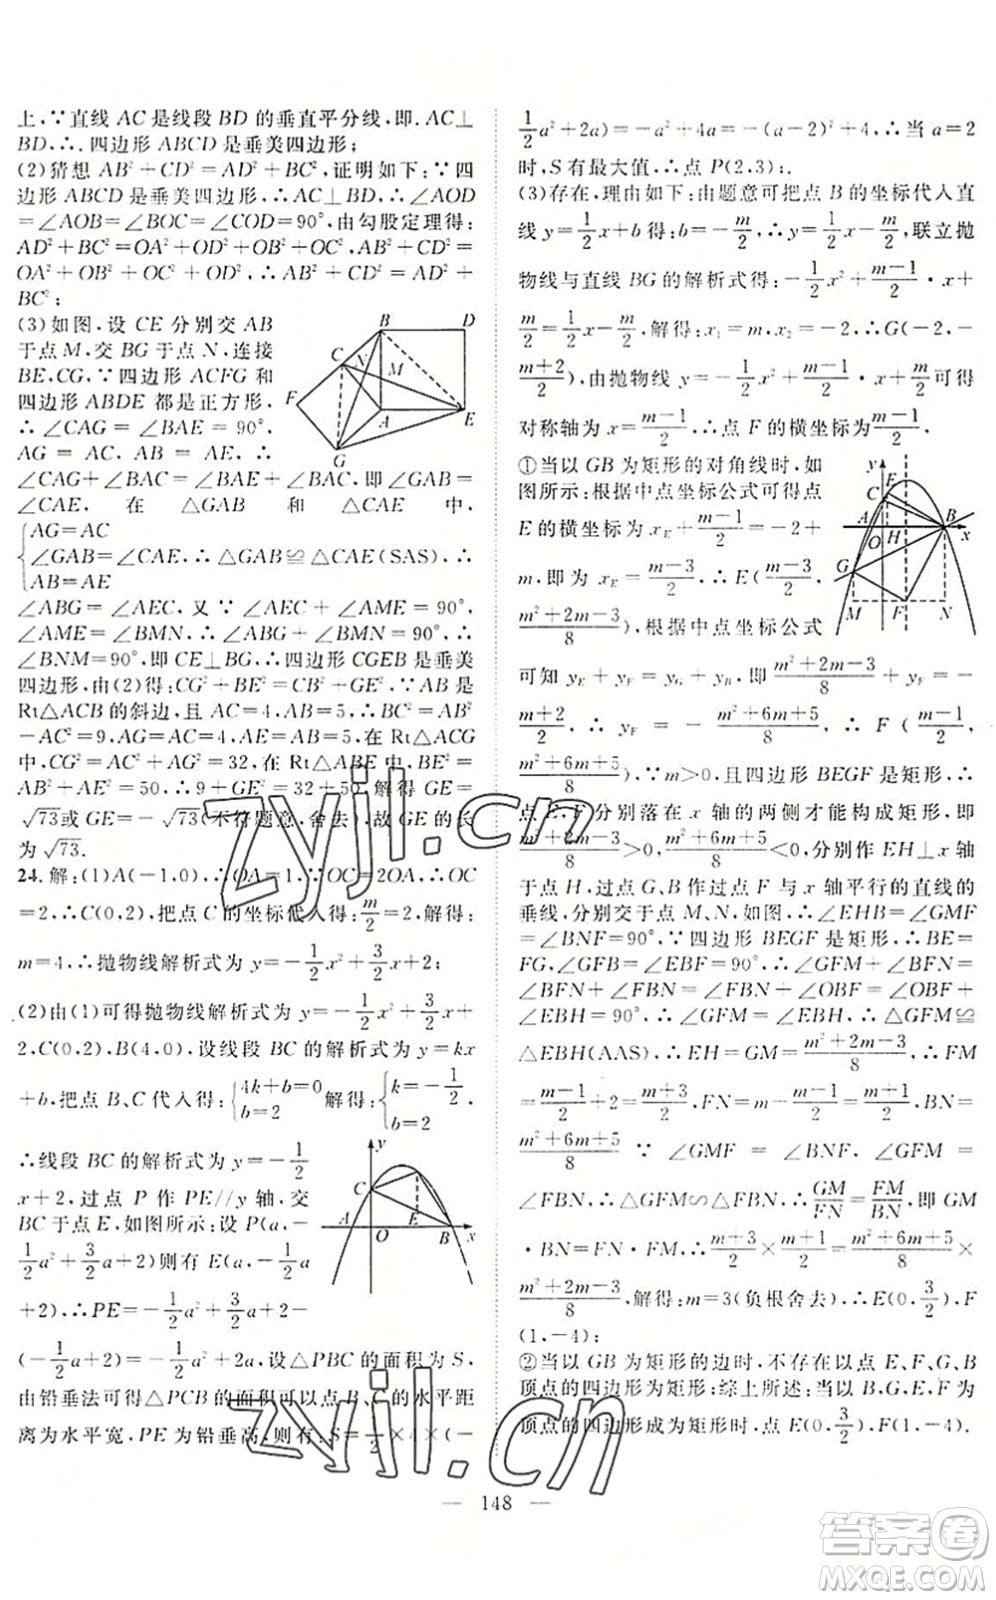 上,∵直线 AC 是线段 BD 的垂直平分线,即.AC⊥
BD,∴.四边形 ABCD 是垂美四边形;
(2)猜想 AB²+CD²=AD²+BC²,证明如下:∵四
边形 ABCD 是垂美四边形,∴AC⊥BD,∴∠AOD
=∠AOB=∠BOC=∠COD=90°,由勾股定理得:
AD²+BC²=OA²+OD²+OB²+OC², AB²+CD²=
OA²+OB²+OC²+OD²,∴AB²+CD²=AD²+
BC²;
(3)如图,设 CE 分别交 AB
于点 M,交 BG 于点 N,连接
BE,CG,∵四边形 ACFG 和
四边形 ABDE 都是正方形,
∴∠CAG=∠BAE=90°,
AG=AC, AB=AE,∴
∠CAG+∠BAC=∠BAE+∠BAC,即∠GAB=
∠CAE,在△GAB 和△CAE 中,
{AG=AC
∠GAB=∠CAE,∴△GAB≌△CAE(SAS),∴
AB=AE
∠ABG=∠AEC,又∵∠AEC+∠AME=90°,
∠AME=∠BMN,∴∠ABG+∠BMN=90°,∴
∠BNM=90°,即 CE⊥BG,∴四边形 CGEB 是垂美
四边形,由(2)得:CG²+BE²=CB²+GE²,∵AB 是
Rt△ACB 的斜边,且 AC=4,AB=5,∴BC²=AB²
-AC²=9,AC=AG=4,AB=AE=5,在 Rt△ACG
中,CG²=AC²+AG²=32,在 Rt△ABE 中,BE²=
AB²+AE²=50,∴9+GE²=32+50,解得 GE=
√73或 GE=-√73(不符题意,舍去),故 GE 的长
为√73.
24.解:(1)A(-1,0),∴OA=1,∵OC=2OA,∴OC
=2,∴C(0,2),把点 C 的坐标代入得:m/2=2,∴
m=4,∴抛物线解析式为 y=-1/2x²+3/2x+2;
(2)由(1)可得抛物线解析式为 y=-1/2x²+3/2x+
2,C(0,2),B(4,0),设线段 BC 的解析式为 y=kx
+b,把点 B、C 代入得:{4k+b=0 b=2 解得:{k=-1/2, b=2
∴线段 BC 的解析式为 y=-1/2
x+2,过点 P 作 PE//y 轴,交
BC 于点 E,如图所示:设 P(a,-
1/2a²+3/2a+2)则有 E(a,-1/2a
+2),∴PE=-1/2a²+3/2a+2-
(-1/2a+2)=-1/2a²+2a,设△PBC 的面积为 S,
由铅垂法可得△PCB 的面积可以点 B、C 的水平距
离为水平宽,PE 为铅垂高,则有:S=1/2×4×(-
1/2a²+2a)=-a²+4a=-(a-2)²+4,∴当 a=2
时,S 有最大值,∴点 P(2,3);
(3)存在,理由如下:由题意可把点 B 的坐标代入直
线 y=1/2x+b 得:b=-m/2,∴y=1/2x-m/2,联立抛
物线与直线 BG 的解析式得:-1/2x²+(m-1)/2·x+
m/2=1/2x-m/2,解得:x₁=m,x₂=-2,∴G(-2,-
(m+2)/2),由抛物线 y=-1/2x²+(m-1)/2·x+m/2可得
对称轴为 x=(m-1)/2,∴点 F 的横坐标为(m-1)/2,
①当以 GB 为矩形的对角线时,如
图所示:根据中点坐标公式可得点
E 的横坐标为 x_E+(m-1)/2=-2+
m,即为 x_E=(m-3)/2,∴E((m-3)/2,
(m²+2m-3)/8),根据中点坐标公式
可知 y_E+y_F=y_G+y_B,即(m²+2m-3)/8+y_F=-
(m+2)/2,∴y_F=-(m²+6m+5)/8,∴F((m-1)/2,
-(m²+6m+5)/8),∵m>0,且四边形 BEGF 是矩形,∴
点 E、F 分别落在 x 轴的两侧才能构成矩形,即
(m²+2m-3)/8>0,-(m²+6m+5)/8<0,分别作 EH⊥x 轴
于点 H,过点 G、B 过点 F 与 x 轴平行的直线的
垂线,分别交于点 M、N,如图,∴∠EHB=∠GMF
=∠BNF=90°,∵四边形 BEGF 是矩形,∴BE=
FG,∠GFB=∠EBF=90°,∴∠GFM+∠BFN=
∠BFN+∠FBN=∠FBN+∠OBF=∠OBF+
∠EBH=90°,∴∠GFM=∠EBH,∴△GFM≌
△EBH(AAS),∴EH=GM=(m²+2m-3)/8,∴FM
=(m-1)/2+2=(m+3)/2,FN=m-(m-1)/2=(m+1)/2,BN=
(m²+6m+5)/8 ∵∠GMF=∠BNF,∠GFM=
∠FBN,∴△GFM∽△FBN,∴GM/FN=FM/BN,即 GM
·BN=FN·FM,∴(m+3)/2×(m+1)/2=(m²+6m+5)/8×
(m²+2m-3)/8,解得:m=3(负根舍去),∴E(0,3/2),F
(1,-4);
②当以 GB 为矩形的边时,不存在以点 E、F、G、B 为
顶点的四边形为矩形;综上所述:当以 B、G、E、F 为
顶点的四边形成为矩形时,点 E(0,3/2),F(1,-4).
B D C N M F A E G
y C A O E B x
y E C A O H B x G M F N
zyjl.cn
zyjl.cn
— 148 —
答案圈
MXQE.COM